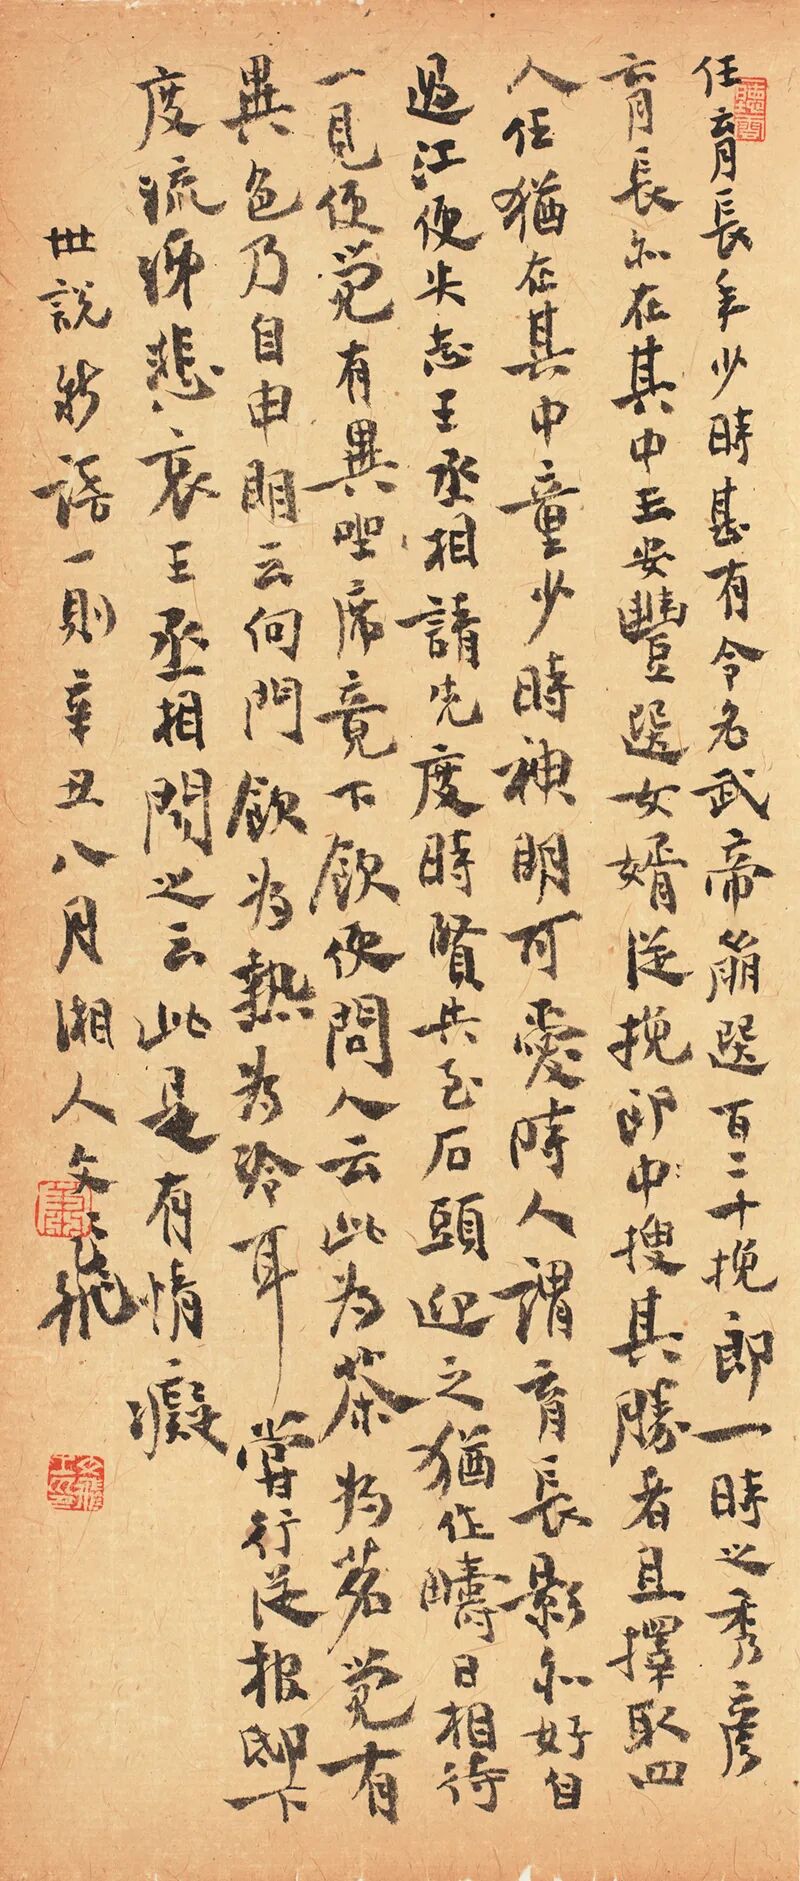 任育長年少時甚有令名武帝崩選百二十挽郎一時之秀彥
育長亦在其中王安豐選女婿從挽郎中搜其勝者且擇取四
人任猶在其中童少時神明可愛時人謂育長影亦好自
過江便失志王丞相請先度時賢共至石頭迎之猶作疇日相待
一見便覺有異坐席竟下飲便問人云此為茶為茗覺有
異色乃自申明云何門飲為熱為冷耳嘗行從報邸下
度流涕悲哀王丞相聞之云此是有情癡
世說新語一則辛丑八月湘人文飛
聽雲